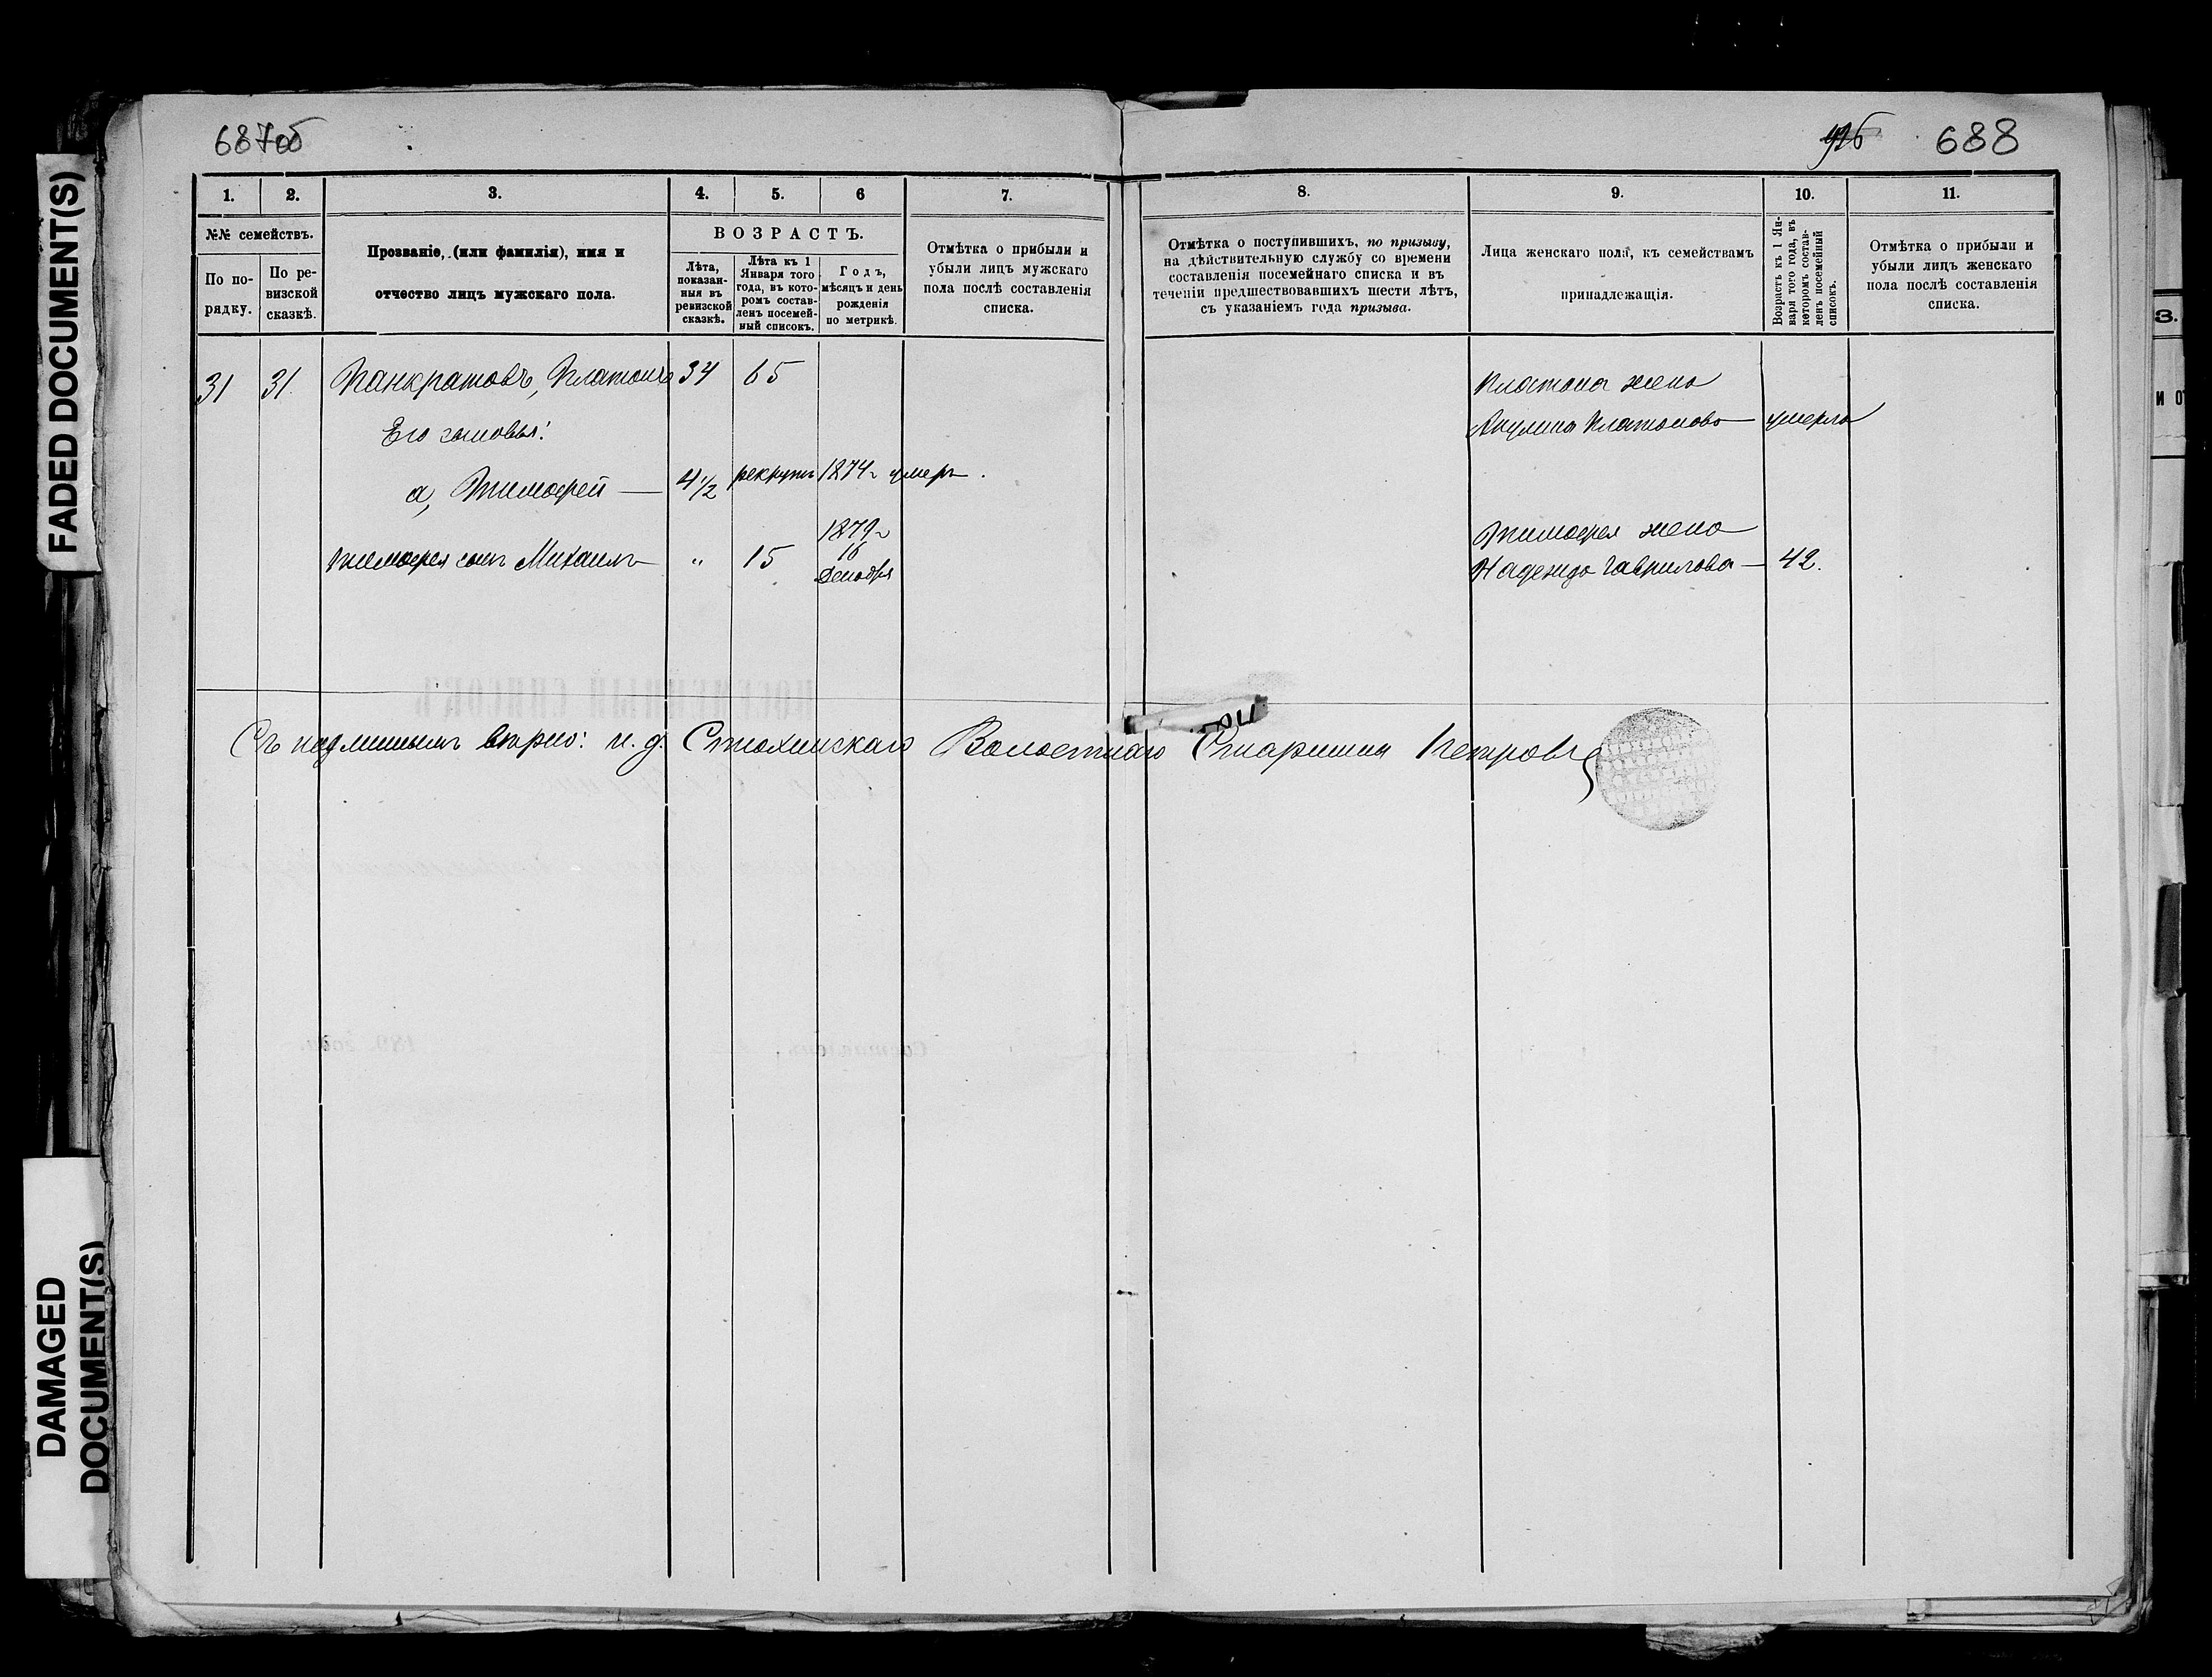 687об
926 688
1. 2. 3. 4. 5. 6 7.
8. 9. 10. 11.
№№ семействъ.
По по-
рядку.
По ре-
визской
сказкѣ.
Прозваніе, (или фамилія), имя и
отчество лицъ мужскаго пола.
ВОЗРАСТЪ.
Лѣта,
показан-
ныя въ
ревизской
сказкѣ.
Лѣта къ 1
Января того
года, въ кото-
ромъ состав-
ленъ посемей-
ный списокъ.
Годъ,
мѣсяцъ и день
рожденія
по метрикѣ.
Отмѣтка о прибыли и
убыли лицъ мужскаго
пола послѣ составленія
списка.
Отмѣтка о поступившихъ, по призыву,
на дѣйствительную службу со времени
составленія посемейнаго списка и въ
теченіи предшествовавшихъ шести лѣтъ,
съ указаніемъ года призыва.
Лица женскаго пола, къ семействамъ
принадлежащія.
Возрастъ къ 1 Ян-
варя того года, въ
которомъ состав-
ленъ посемейный
списокъ.
Отмѣтка о прибыли и
убыли лицъ женскаго
пола послѣ составленія
списка.
31 31. Панкратовъ, Платонъ 34 65
Платона жена
Его сыновья:
Акулина Платонова — умерла
а, Тимофей — 4½ рекрутъ 1874 г умеръ.
Тимофея жена
Тимофея сынъ Михаилъ — „ 15
1879 г
16
Декабря
Надежда Гаврилова — 42.
Съ подлиннымъ вѣрно: и. д. Стюхинскаго Волостнаго Старшины Петровъ
FADED DOCUMENT(S)
DAMAGED
DOCUMENT(S)
3.